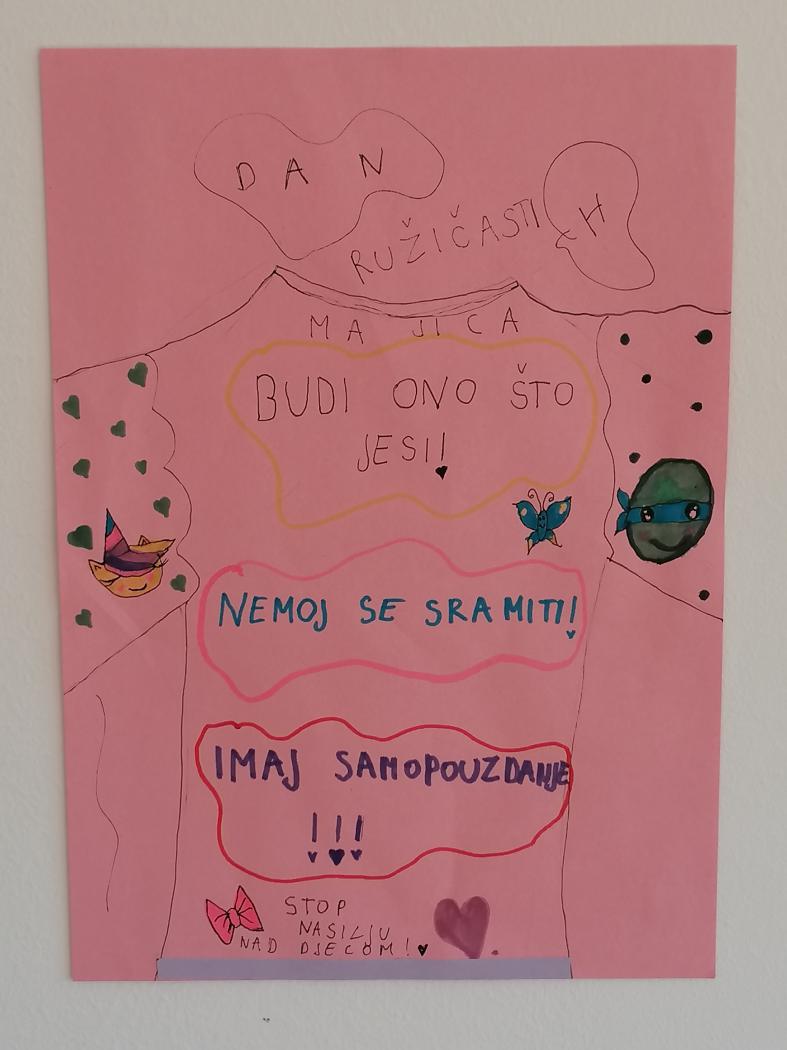 DAN
RUŽIČASTIH
MAJICA
BUDI ONO ŠTO
JESI!
NEMOJ SE SRAMITI!
IMAJ SAMOPOUZDANJE
!!!
STOP
NASILJU
NAD DJECOM!